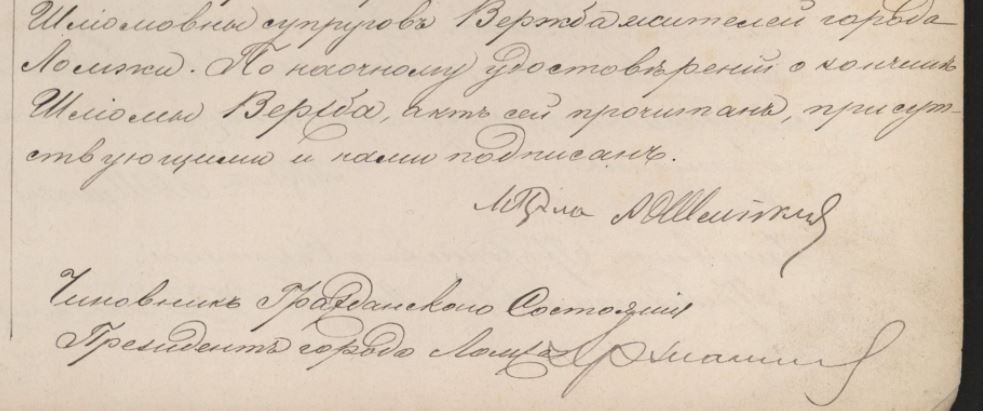 Шліомовны супруговъ Вержба жителей города
Ломжи. По наочному удостовѣреніи о кончинѣ
Шліомы Вержба, актъ сей прочитанъ, присут-
ствующими и нами подписанъ.
Чиновникъ Гражданскаго Состоянія
Президентъ города Ломжи